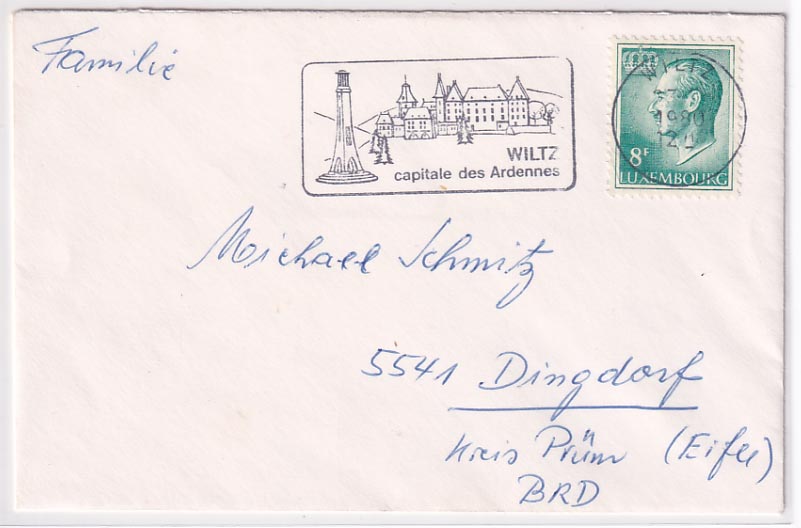 Familie
WILTZ
capitale des Ardennes
WILTZ
1980
8F
LUXEMBOURG
Michael Schmitz
5541 Dingdorf
Kreis Prüm (Eifel)
BRD